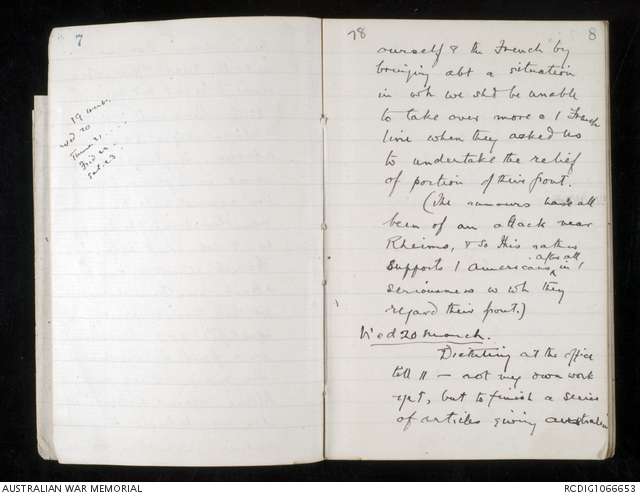 7
19
Wed 20
Thurs 21
Frid 22
Sat. 23
78
8
ourself & the French by
bringing abt a situation
in wh we shd be unable
to take over more o / French
line when they asked us
to undertake the relief
of portion of their front.
(The rumours have all
been of an attack near
Rheims, & so this rather
supports / Americans after all in /
seriousness w wh they
regard their front.)
Wed 20 March.
Dictating at the office
till 11 — not my own work
yet, but to finish a series
of articles giving Australian
AUSTRALIAN WAR MEMORIAL
RCDIG1066653